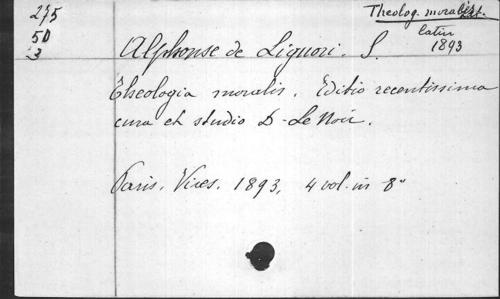 275
50
3
Theolog. morali
latin
1893
Alphonse de Liguori. S.
Theologia moralis. Editio recentissima
cura et studio D. Le Noir.
Paris. Vives. 1893, 4 vol. in 8°